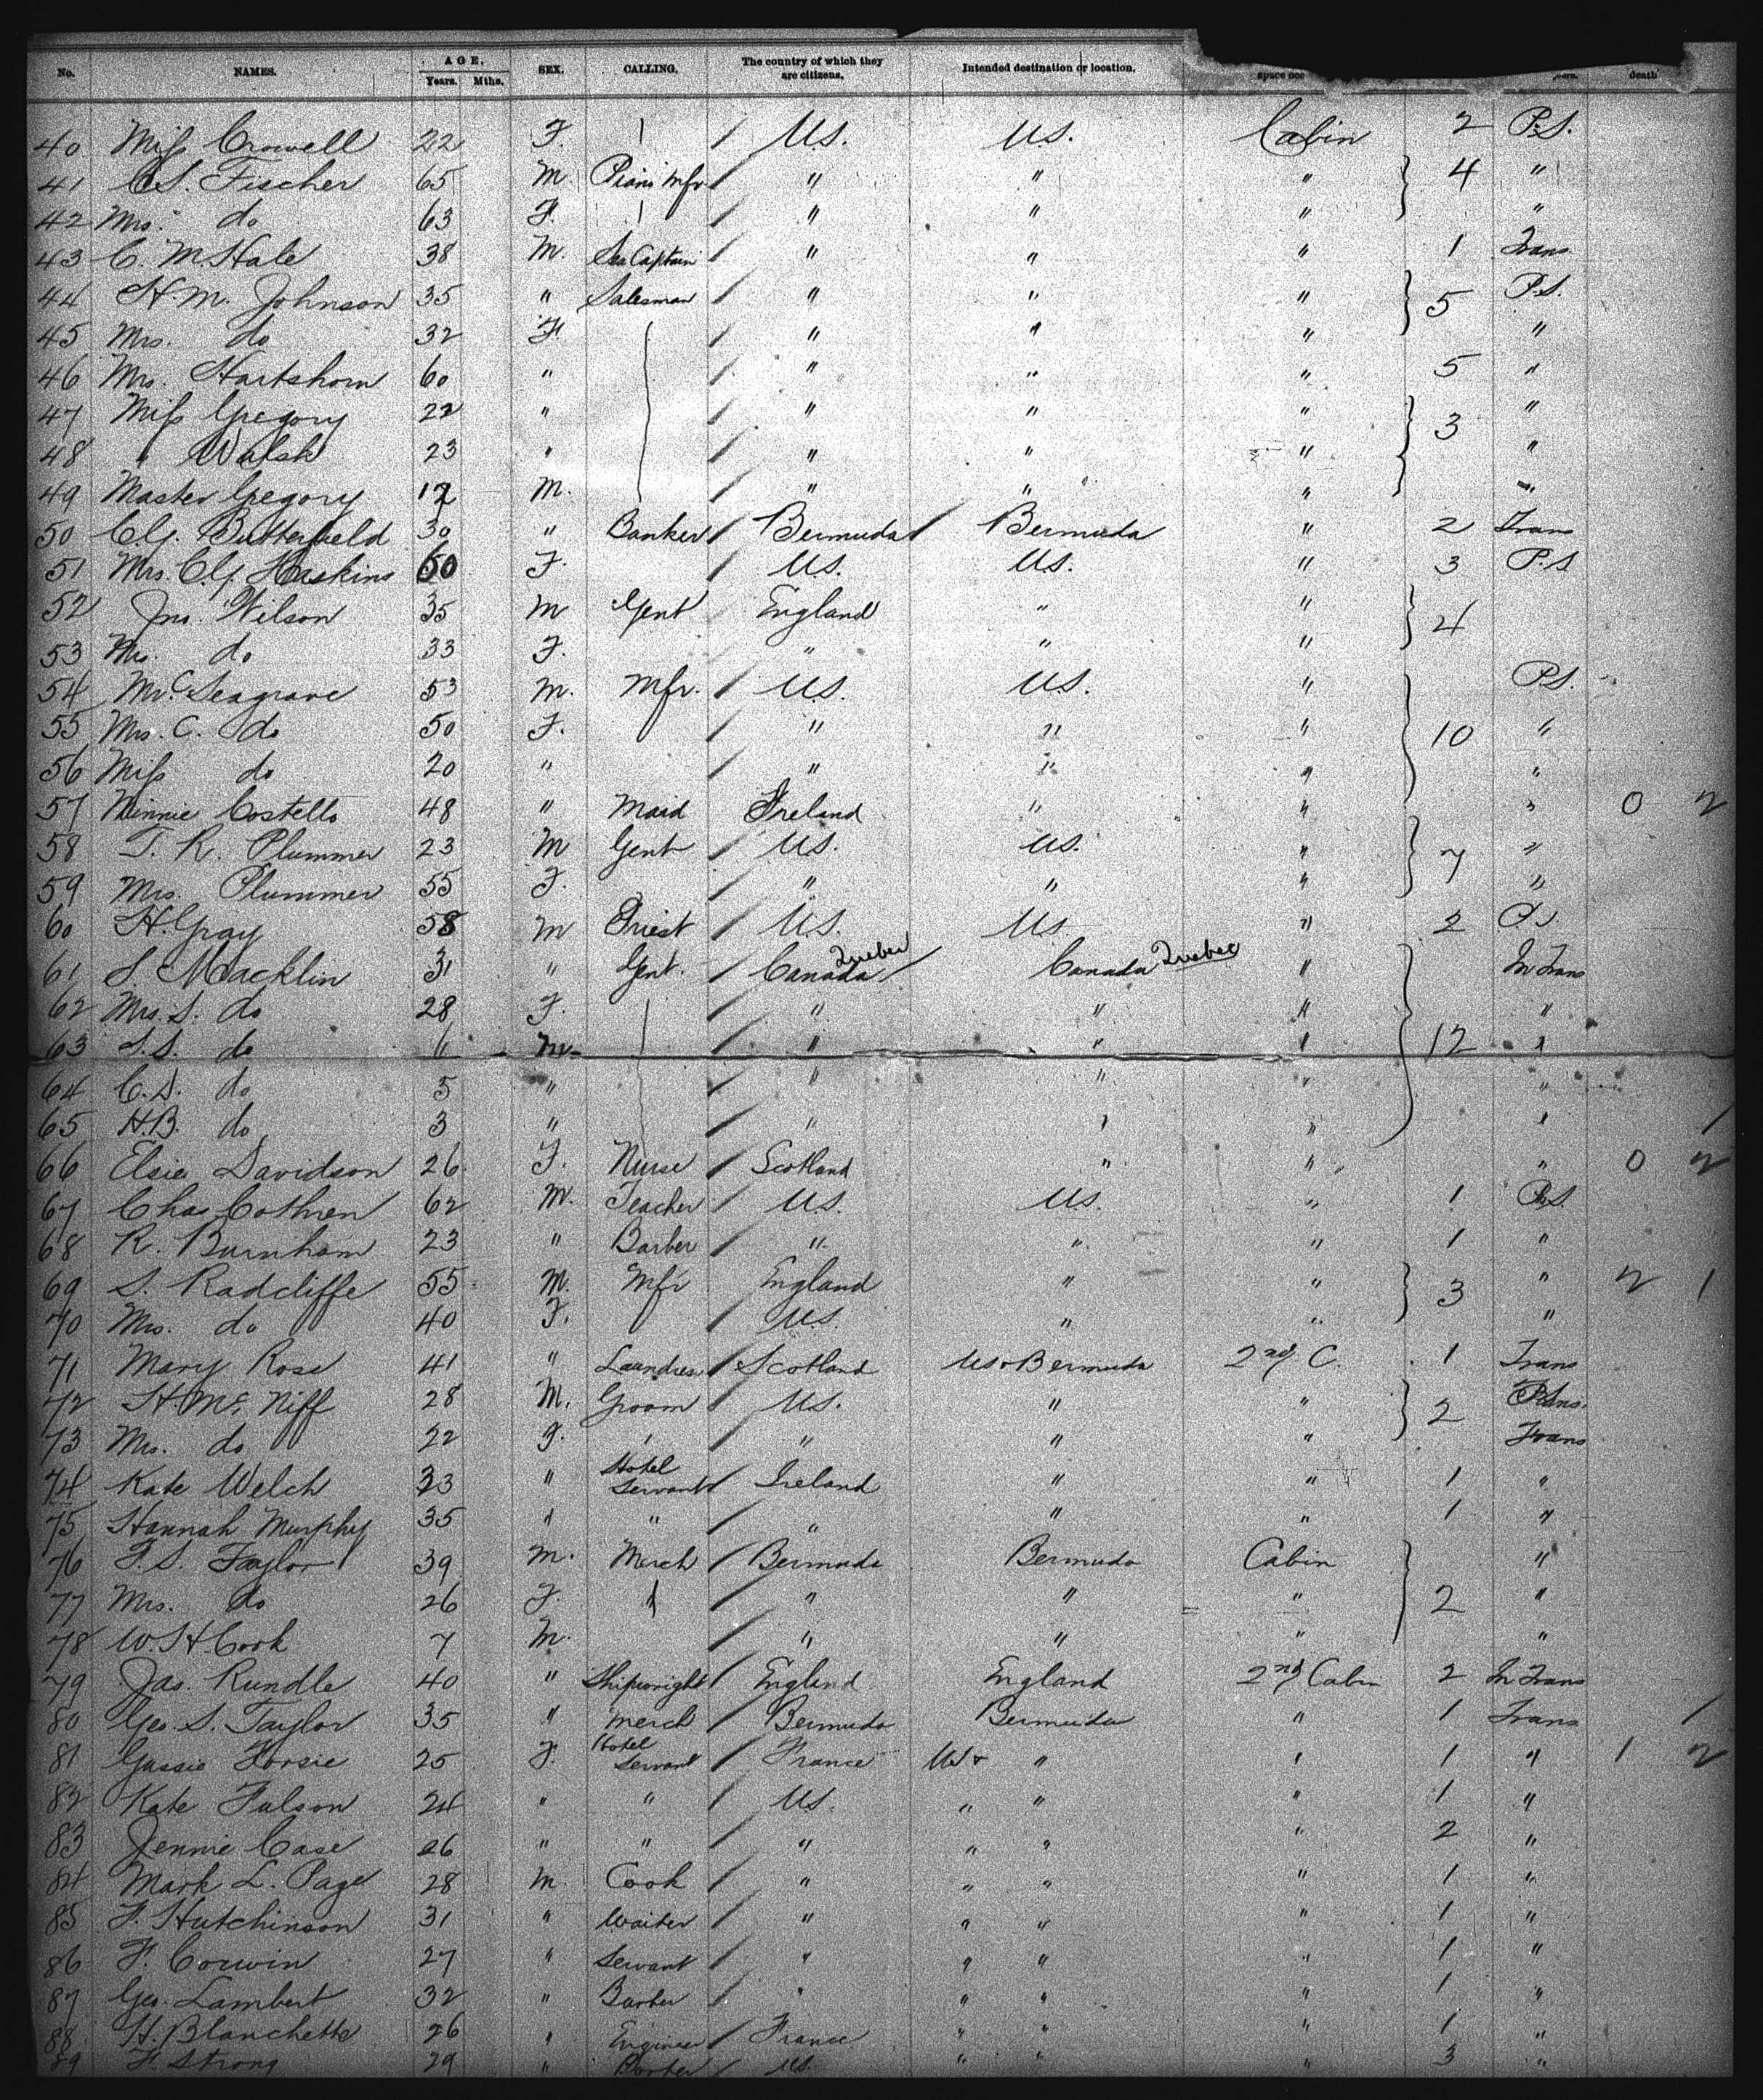 No. NAMES. AGE. Years. Mths. SEX. CALLING. The country of which they are citizens. Intended destination or location. space occ death
40 Miss Crowell 22 F. U.S. U.S. Cabin 2 P.S.
41 C.S. Fischer 65 M. Piano Mfr " " " 4 "
42 Mrs. do 63 F. " " " "
43 C. M. Hale 38 M. Sea Captain " " " 1 Trans
44 H. M. Johnson 35 " Salesman " " " 5 P.S.
45 Mrs. do 32 F. " " " "
46 Mrs. Hartshorn 60 " " " " 5 "
47 Miss Gregory 22 " " " " 3 "
48 " Walsh 23 " " " " "
49 Master Gregory 12 M. " " " "
50 C.G. Butterfield 30 " Banker Bermuda Bermuda " 2 Trans
51 Mrs. C.G. Haskins 50 F. U.S. U.S. " 3 P.S.
52 Jno. Wilson 35 M Gent England " " 4
53 Mrs. do 33 F. " " "
54 Mr. C Seagrave 53 M. Mfr. U.S. U.S. " 10 P.S.
55 Mrs. C. do 50 F. " " " "
56 Miss do 20 " " " " "
57 Minnie Costello 48 " Maid Ireland " " " 0 2
58 T. R. Plummer 23 M Gent U.S. U.S. " 7 "
59 Mrs. Plummer 55 F. " " " "
60 H. Gray 58 M Priest U.S. U.S. " 2 P.S.
61 S. Macklin 31 " Gent. Canada Quebec Canada Quebec " 12 In Trans
62 Mrs. S. do 28 F. " " " "
63 S.S. do 6 M. " " " "
64 C.S. do 5 " " " " "
65 H.B. do 3 " " " " "
66 Elsie Davidson 26 F. Nurse Scotland " " " 0 2
67 Chas Cothren 62 M. Teacher U.S. U.S. " 1 P.S.
68 R. Burnham 23 " Barber " " " 1 "
69 S. Radcliffe 55 M. Mfr England " " 3 " 2 1
70 Mrs. do 40 F. U.S. " " "
71 Mary Rose 41 " Laundress Scotland US & Bermuda 2nd C. 1 Trans
72 H. Mc Niff 28 M. Groom U.S. " " 2
73 Mrs. do 22 F. " " " Trans
74 Kate Welch 33 " Hotel Servant Ireland " " 1 "
75 Hannah Murphy 35 " " " " " 1 "
76 T. S. Taylor 39 M. Merch Bermuda Bermuda Cabin 2 "
77 Mrs. do 26 F. " " " " "
78 W. H. Cook 7 M. " " " "
79 Jas. Rundle 40 " Shipwright England England 2nd Cabin 2 In Trans
80 Geo. S. Taylor 35 " Merch Bermuda Bermuda " 1 Trans
81 Gussie 25 F. Hotel Servant France US & " " 1 " 1 2
82 Kate Fulson 24 " " U.S. " " " 1 "
83 Jennie Case 26 " " " " " " 2 "
84 Mark L. Page 28 M. Cook " " " " 1 "
85 F. Hutchinson 31 " Waiter " " " " 1 "
86 F. Corwin 27 " Servant " " " " 1 "
87 Geo. Lambert 32 " Barber " " " " 1 "
88 H. Blanchette 26 " Engineer France " " " 1 "
89 F. Strong 29 " Porter U.S. " " " 3 "